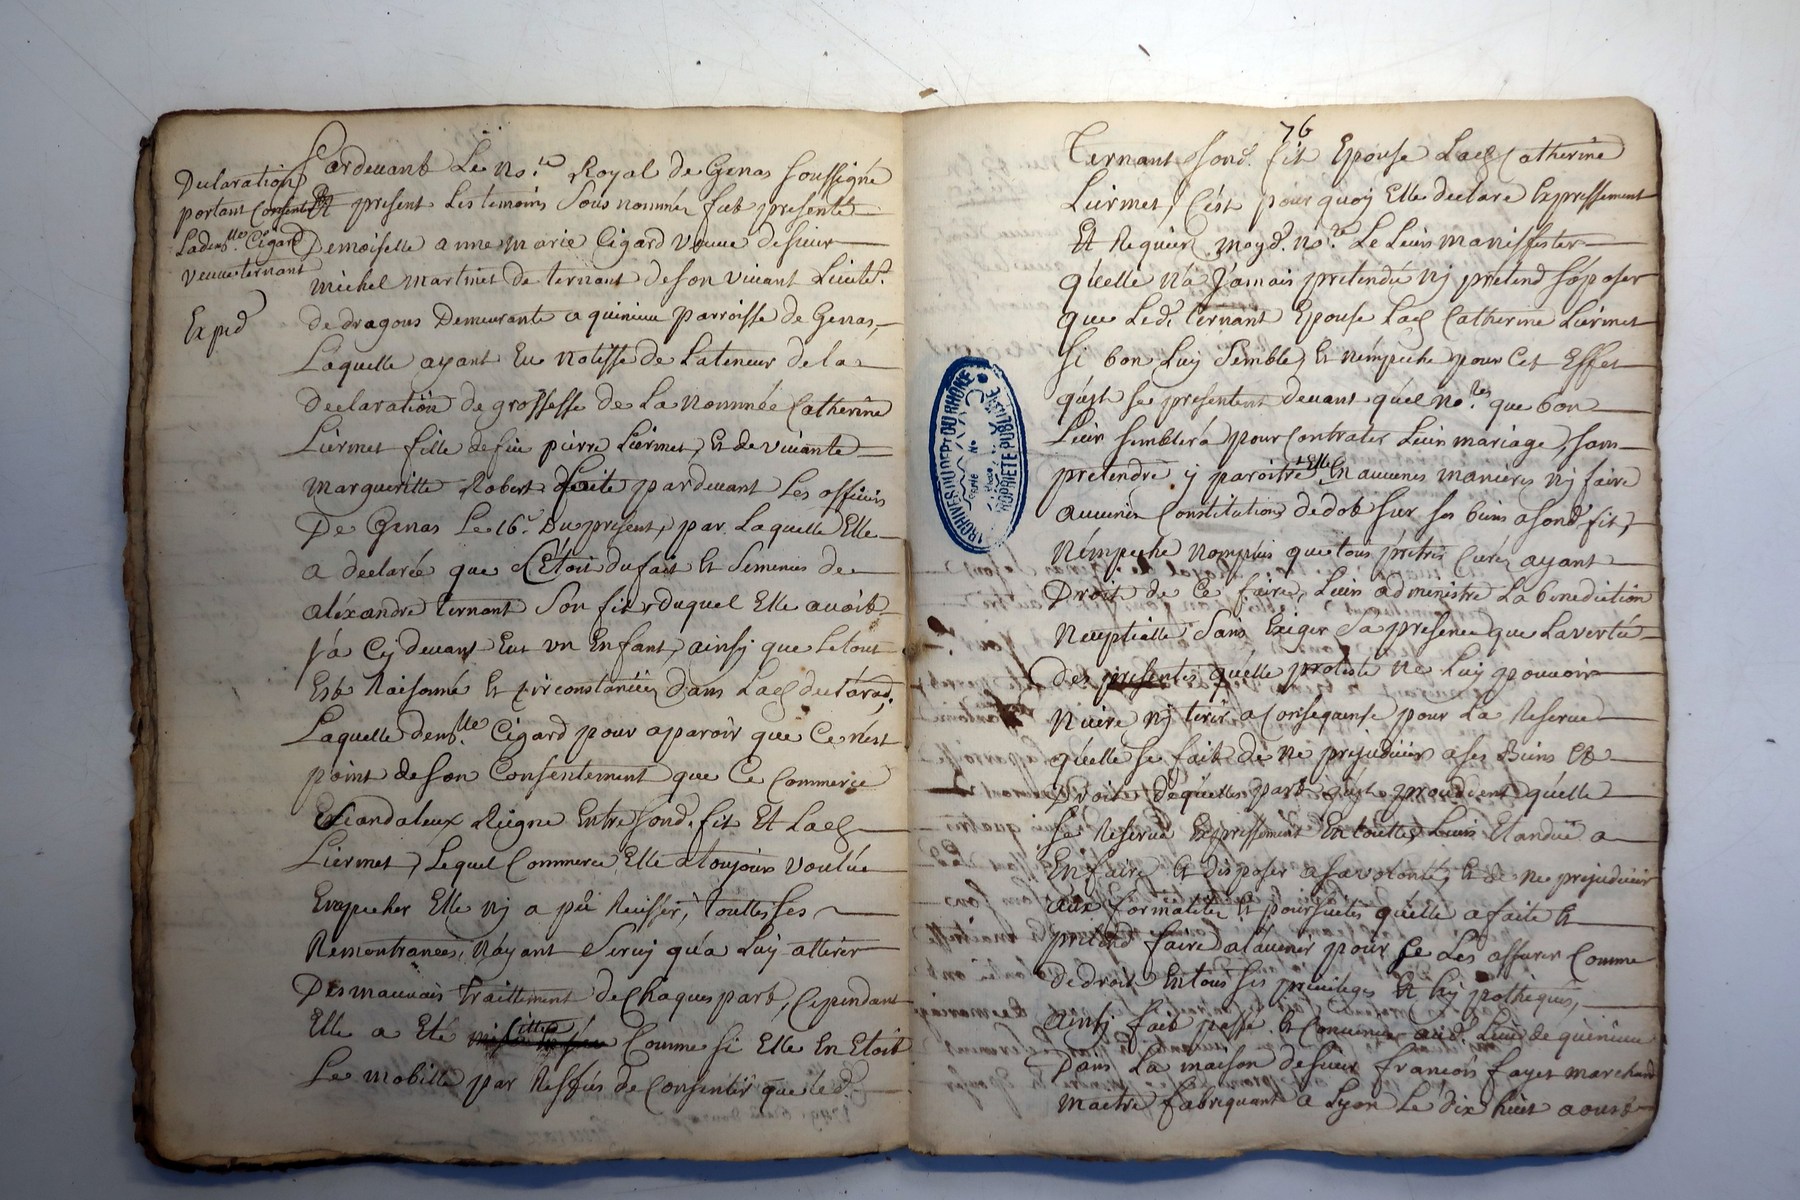 Declaration
portant Consent.t
Ladem.lle Cigard
veuve ternant
Exped
Pardevant Le No.re Royal de Genas soussigné
Et present Les temoins Sous nommés fut presente
Demoiselle anne marie Cigard veuve de sieur
michel martinet de ternant de son vivant Lieute.t
de dragons Demeurante a quinieu parroisse de Genas,
Laquelle ayant Eu notisse de Lateneur de la
declaration de grossesse de La nommée Catherine
Liermet fille de feu pierre Liermet, Et de vivante
margueritte Robert faite pardevant Les officiers
De Genas Le 16.e Du present, par Laquelle Elle
a declarée que C'étoit du fait Et Semences de
aléxandre ternant Son fils duquel Elle avoit
ja Cy devant Eut un Enfant, ainsy que Letout
Est Raisonné Et circonstanciée dans Lad
Laquelle dem.lle Cigard pour aparoir que Ce nést
point de son Consentement que Ce Commerce
Escandaleux Reigne Entre sond. fils Et Lad.
Liermet, Lequel Commerce Elle a toujours voulûe
Empecher Elle nj a pû Reussir, touttes ses
Remontrances, N'ayant Servy qu'a Luy attirer
Des mauvais traittement de Chaques part, Cependant
Elle a Eté Comme si Elle En Etoit
Le mobille par Reffus de Consentir que led.
76
Ternant sond. fils Epouse Lad. Catherine
Liermet, C'ést pour quoy Elle declare Expressement
Et Requier moyd. no.re Le Leur maniffester
qu'elle N'a Jamais pretendu nj pretend s'oposer
que Led. ternant Epouse Lad. Catherine Liermet
Si bon Luy Semble, Et N'émpeche pour Cet Effet
se presentent devant quel No.res que bon
Leur semblera pour Contrater Leur mariage, sans
pretendre y paroitre Elle En aucunes manieres nj faire
aucunes Constitutions de dot sur ses biens a sond. fils,
N'émpeche nomplus que tous prêtres Curéz ayant
Droit de Ce faire, Leur administre La benediction
Neuptialle Sans Exiger Sa presence que Lavertu
des presentes qu'elle proteste ne Luy pouvoir
Nuire nj tirer a Conséquense pour La Reserve
qu'elle se fait de ne prejudicier a ses Biens Et
Droits de quelles part qu'ils proviennent qu'elle
se Reserve Expressement En touttes Leurs Etandüe a
En faire Et disposer a sa volonté, Et de ne prejudicier
aux formalités Et poursuites qu'elle a faite Et
prétend faire a l'avenir pour se Les assurer Comme
de droit En tous ses privileges Et hypotheques,
ainsi fait passé Et Convenue aud. Lieu de quinieu
Dans La maison de sieur françois fayet marchand
maitre fabriquant a Lyon Le dix huit aoust
ARCHIVES DU DEPT DU RHÔNE
PROPRIETE PUBLIQUE